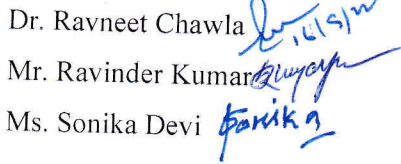 Dr. Ravneet Chawla 16/5/22
Mr. Ravinder Kumar
Ms. Sonika Devi Sonika